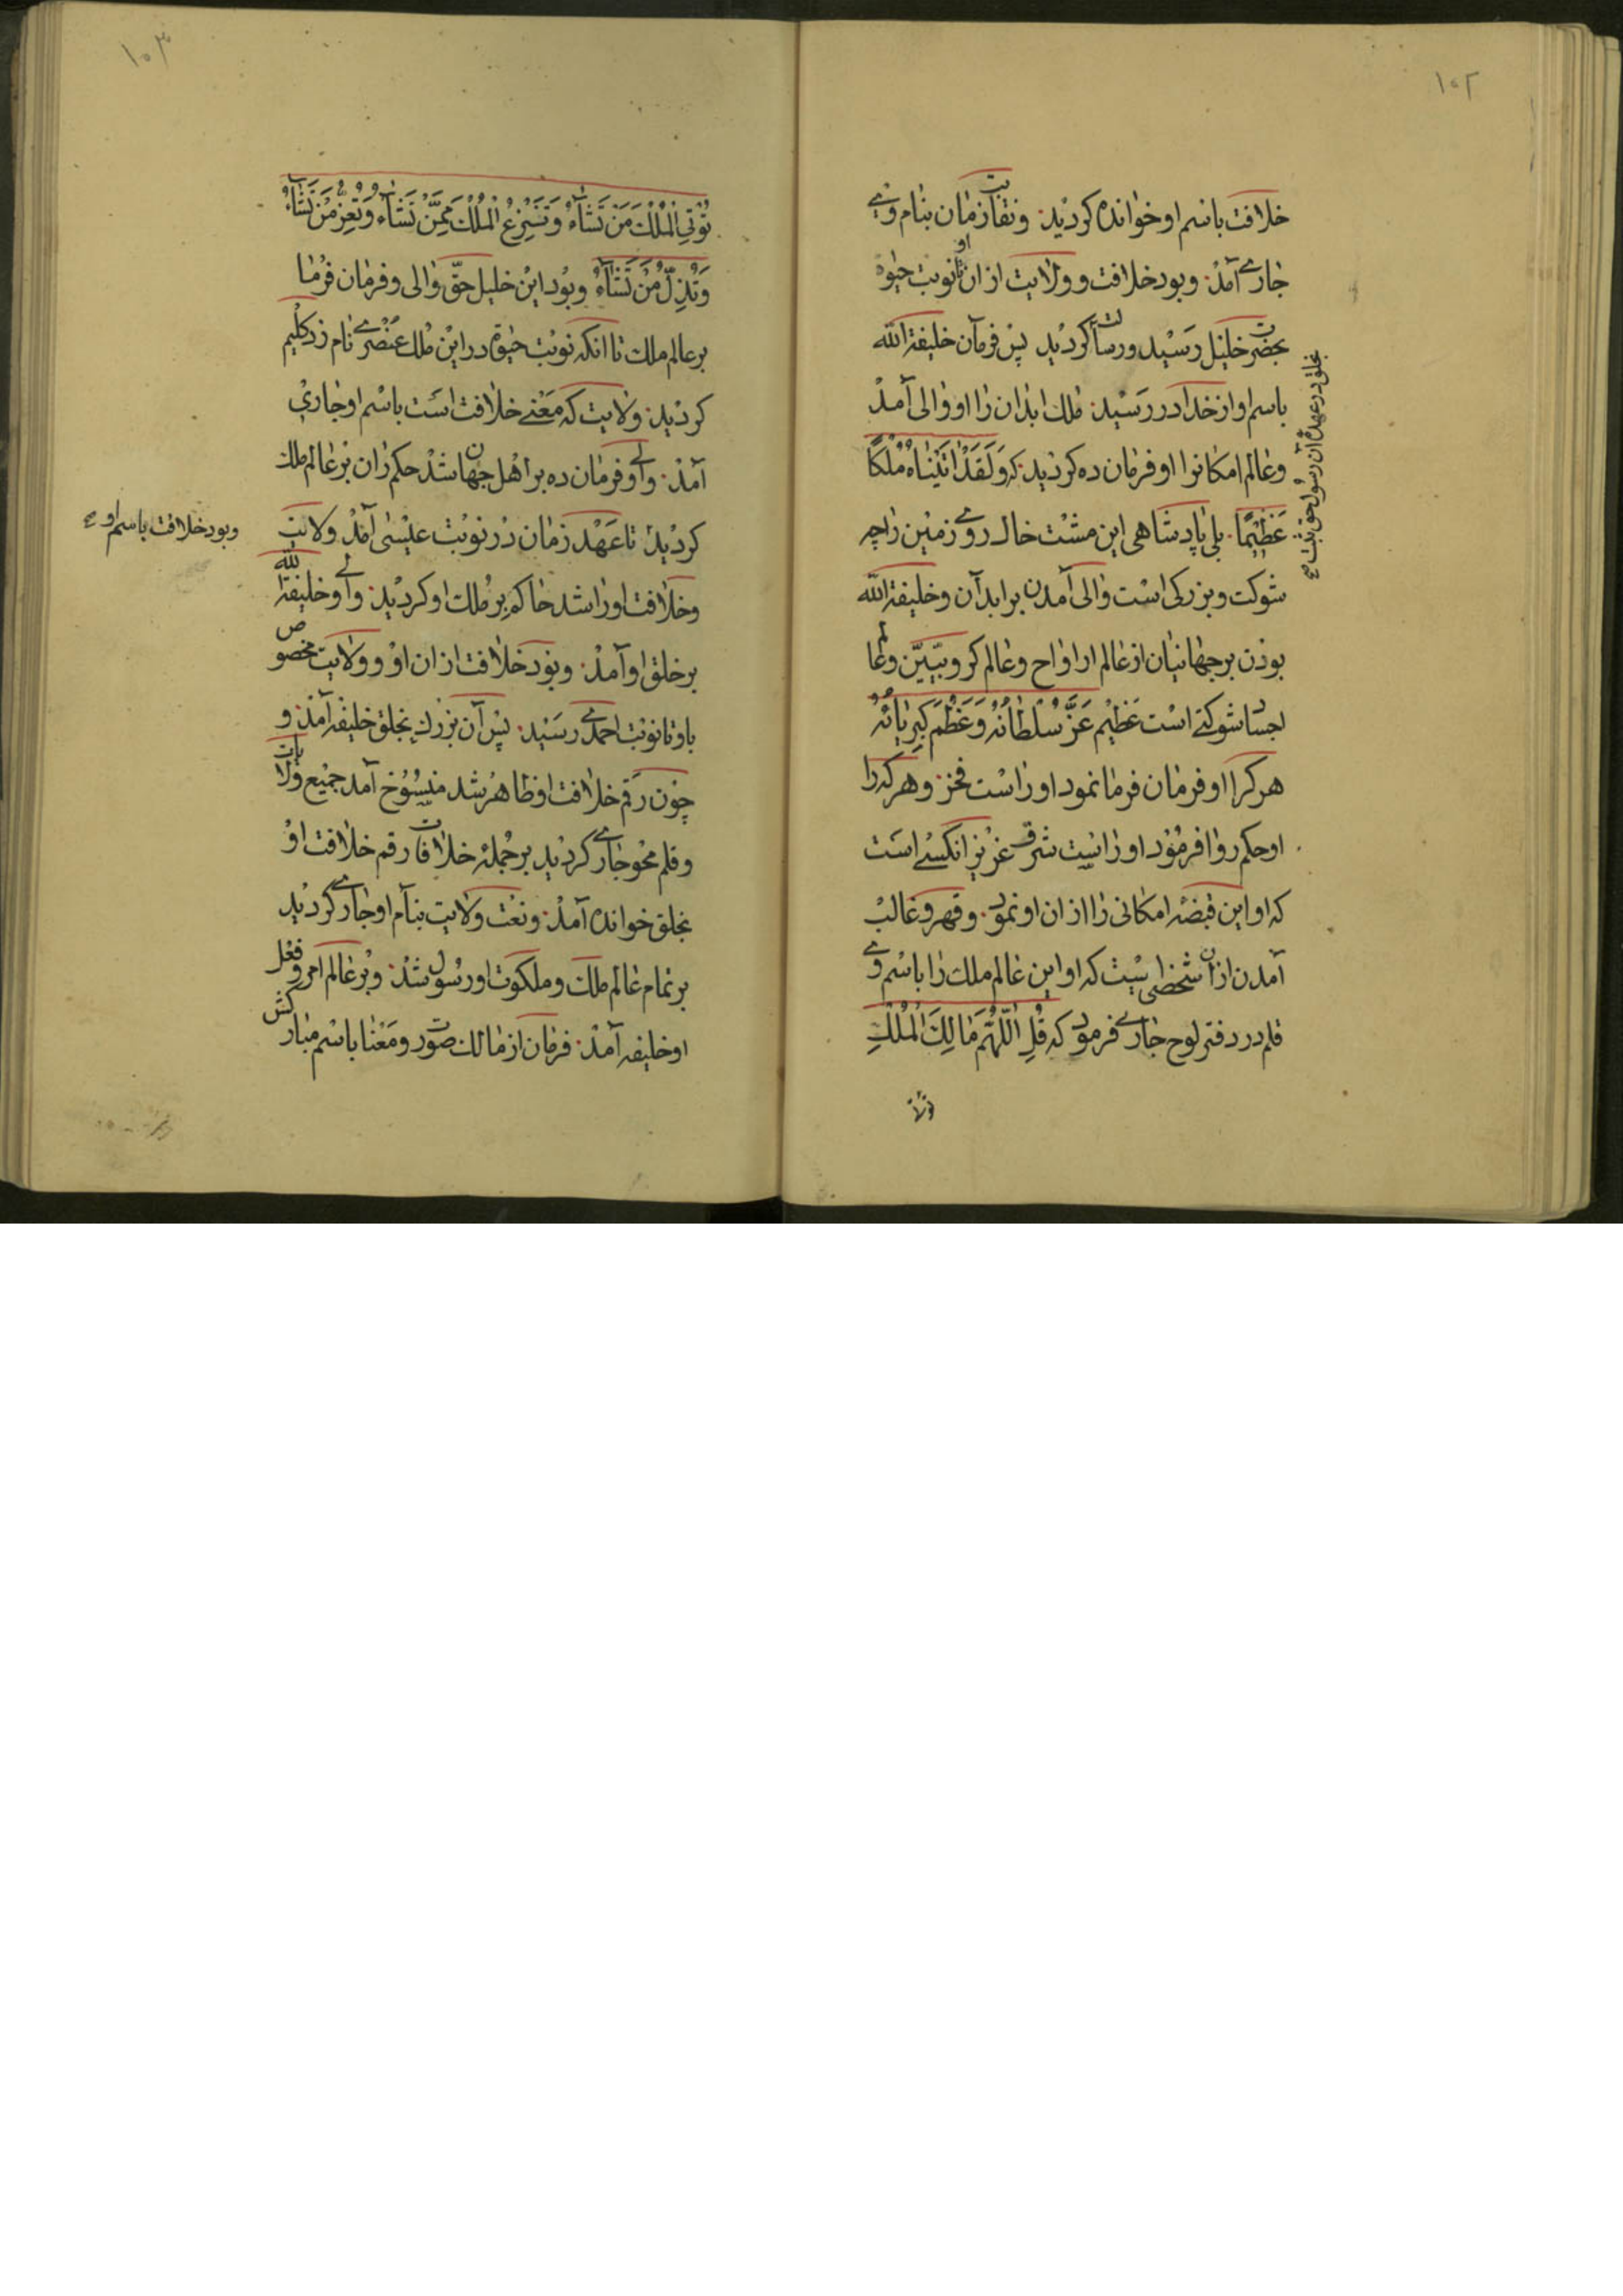 ١٠٢
خلافت باسم او خوانده کردید. و نقابت زمان بنام وی
جاری آمد. و بود خلافت و ولایت از ان او تا نوبت حیوة
بحضرت خلیل رسید و رسالت کردید پس فرمان خلیفة الله
باسم او از خدا در رسید. ملک ابدان را او والی آمد
و عالم امکانرا او فرمان ده کردید که وَلَقَدْ اتَیْنَاهُ مُلْکًا
عَظِیْمًا. بلی پادشاهی این مشت خاک روی زمین را چه
شوکت و بزرکی است والی آمدن بر ابدان و خلیفة الله
بودن بر جهانیان از عالم ارواح و عالم کروبیین و عالم
اجساد شوکتی است عظیم عَزَّ سُلْطَانُهُ وَعَظُمَ کِبرِیَائُهُ
هر کرا او فرمان فرما نمود او راست فخر. و هر که را
او حکم روا فرمود او راست شرف عزیز انکسی است
که او این قبضه امکانی را از ان او نمود. و قهر و غالب
آمدن از ان شخصی است که او این عالم ملک را باسم وی
قلم در دفتر لوح جاری فرمود که قُلِ اللّهُمَّ مَالِکَ الْمُلْکِ
بخلق در عهد آن رسول حق
١٠٣
تُؤتِی الْمُلْکَ مَنْ تَشَاءُ وَتَنْزِعُ الْمُلْکَ مِمَّنْ تَشَاءُ وَتُعِزُّ مَنْ تَشَاءُ
وَتُذِلُّ مَنْ تَشَاءُ و بود این خلیل حقّ والی و فرمان فرما
بر عالم ملک تا انکه نوبت حیوة در این ملک عنصری نام زد کلیم
کردید. ولایت که معنی خلافت است باسم او جاری
آمد. والی و فرمان ده بر اهل جهان شد حکم ران بر عالم ملک
کردید تا عهد زمان در نوبت عیسی آمد ولایت
و خلافت او را شد حاکم بر ملک او کردید. والی و خلیفة الله
بر خلق او آمد. و بود خلافت از ان او و ولایت مخصوص
باو تا نوبت احمدی رسید. پس آن بزرك بخلق خلیفه آمد. و
چون رقم خلافت او ظاهر شد منسوخ آمد جمیع ولایات
و قلم محو جاری کردید بر جمله خلافات رقم خلافت او
بخلق خوانده آمد. و نعت ولایت بنام او جاری کردید
بر تمام عالم ملک و ملکوت او رسول شد. و بر عالم امر و فعل
او خلیفه آمد. فرمان از مالك صورت و معنا باسم مبارکش
و بود خلافت باسم او